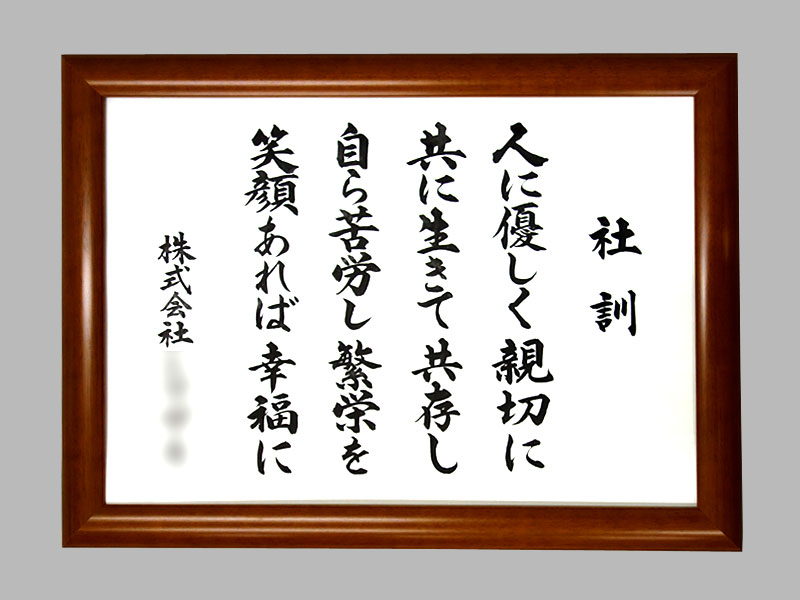 社訓
人に優しく 親切に
共に生きて 共存し
自ら苦労し 繁栄を
笑顔あれば 幸福に
株式会社